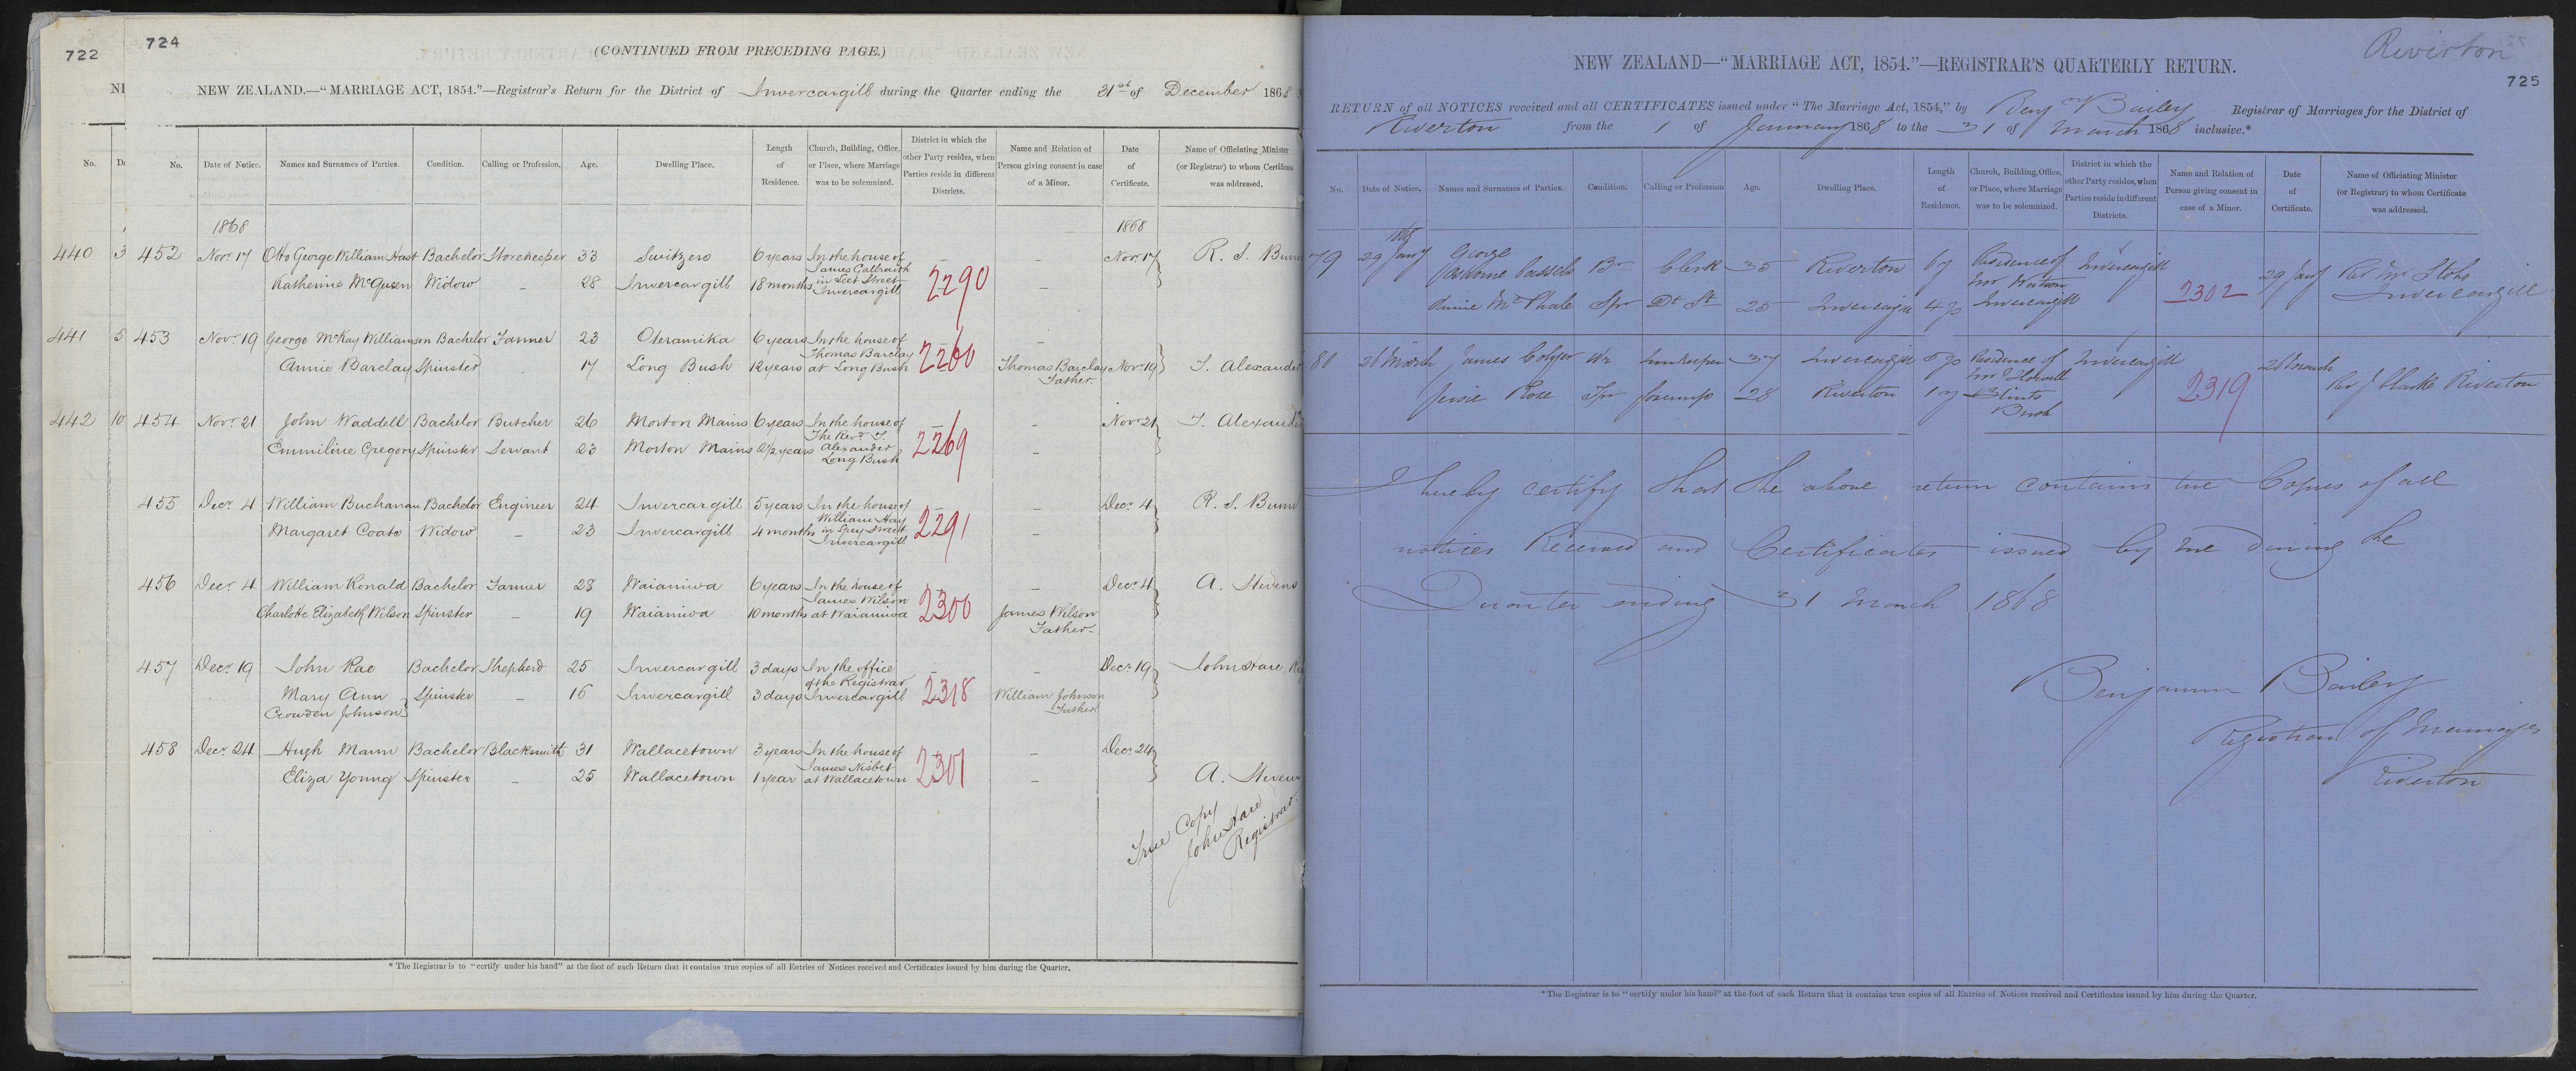 722
724
(CONTINUED FROM PRECEDING PAGE.)
NEW ZEALAND.—"MARRIAGE ACT, 1854."—Registrar's Return for the District of Invercargill during the Quarter ending the 31st of December 1868
No. Date of Notice. Names and Surnames of Parties. Condition. Calling or Profession. Age. Dwelling Place. Length of Residence. Church, Building, Office, or Place, where Marriage was to be solemnized. District in which the other Party resides, when Parties reside in different Districts. Name and Relation of Person giving consent in case of a Minor. Date of Certificate. Name of Officiating Minister (or Registrar) to whom Certificate was addressed.
1868 1868
440 3
452 Novr 17 Otto George William Hast Bachelor Storekeeper 33 Switzers 6 years In the house of James Galbraith in Leet Street Invercargill – – Novr 17 R. S. Bunn
Katherine McQueen Widow – 28 Invercargill 18 months 2290 –
441 5
453 Novr 19 George McKay Williamson Bachelor Farmer 23 Oteramika 6 years In the house of Thomas Barclay at Long Bush –
Annie Barclay Spinster 17 Long Bush 12 years 2260 Thomas Barclay Father Novr 19 T. Alexander
442 10
454 Novr 21 John Waddell Bachelor Butcher 26 Morton Mains 6 years In the house of The Revd T. Alexander Long Bush – – Novr 21 T. Alexander
Emmiline Gregory Spinster Servant 23 Morton Mains 2 1/2 years 2269 –
455 Decr 4 William Buchanan Bachelor Engineer 24 Invercargill 5 years In the house of William Hay in Spey Street Invercargill – – Decr 4 R. S. Bunn
Margaret Coats Widow – 23 Invercargill 4 months 2291 –
456 Decr 4 William Ronald Bachelor Farmer 28 Waianiwa 6 years In the house of James Wilson at Waianiwa – – Decr 4 A. Stevens
Charlotte Elizabeth Wilson Spinster – 19 Waianiwa 10 months 2300 James Wilson Father
457 Decr 19 John Rae Bachelor Shepherd 25 Invercargill 3 days In the office of the Registrar Invercargill – – Decr 19 John Hare
Mary Ann Crowden Johnson Spinster – 16 Invercargill 3 days 2318 William Johnson Father
458 Decr 24 Hugh Mann Bachelor Blacksmith 31 Wallacetown 3 years In the house of James Nisbet at Wallacetown – – Decr 24
Eliza Young Spinster – 25 Wallacetown 1 year 2301 – A. Steven
True Copy
John Hare
Registrar
* The Registrar is to "certify under his hand" at the foot of each Return that it contains true copies of all Entries of Notices received and Certificates issued by him during the Quarter.
Riverton
725
NEW ZEALAND—"MARRIAGE ACT, 1854."—REGISTRAR'S QUARTERLY RETURN.
RETURN of all NOTICES received and all CERTIFICATES issued under "The Marriage Act, 1854," by Benjn Bailey Registrar of Marriages for the District of
Riverton from the 1 of January 1868 to the 31 of March 1868 inclusive.*
No. Date of Notice. Names and Surnames of Parties. Condition. Calling or Profession Age. Dwelling Place. Length of Residence. Church, Building, Office, or Place, where Marriage was to be solemnized. District in which the other Party resides, when Parties reside in different Districts. Name and Relation of Person giving consent in case of a Minor. Date of Certificate. Name of Officiating Minister (or Registrar) to whom Certificate was addressed.
1868
79 29 Jany George Cassels Br Clerk 35 Riverton 6 y Residence of Mr Watson Invercargill Invercargill 29 Jany Rev Mr Stobo Invercargill
Annie McPhale Spr 25 Invercargill 2302
80 26 March James Wr Innkeeper 37 Invercargill Residence of Mr Bush Invercargill 26 March Rev J Clarke Riverton
Jessie Rose Spr 28 Riverton 1 y 2319
I hereby certify that the above return contains true Copies of all
notices Received and Certificates issued by me during the
Quarter ending 31 March 1868
Benjamin Bailey
Registrar of Marriages
Riverton
* The Registrar is to "certify under his hand" at the foot of each Return that it contains true copies of all Entries of Notices received and Certificates issued by him during the Quarter.